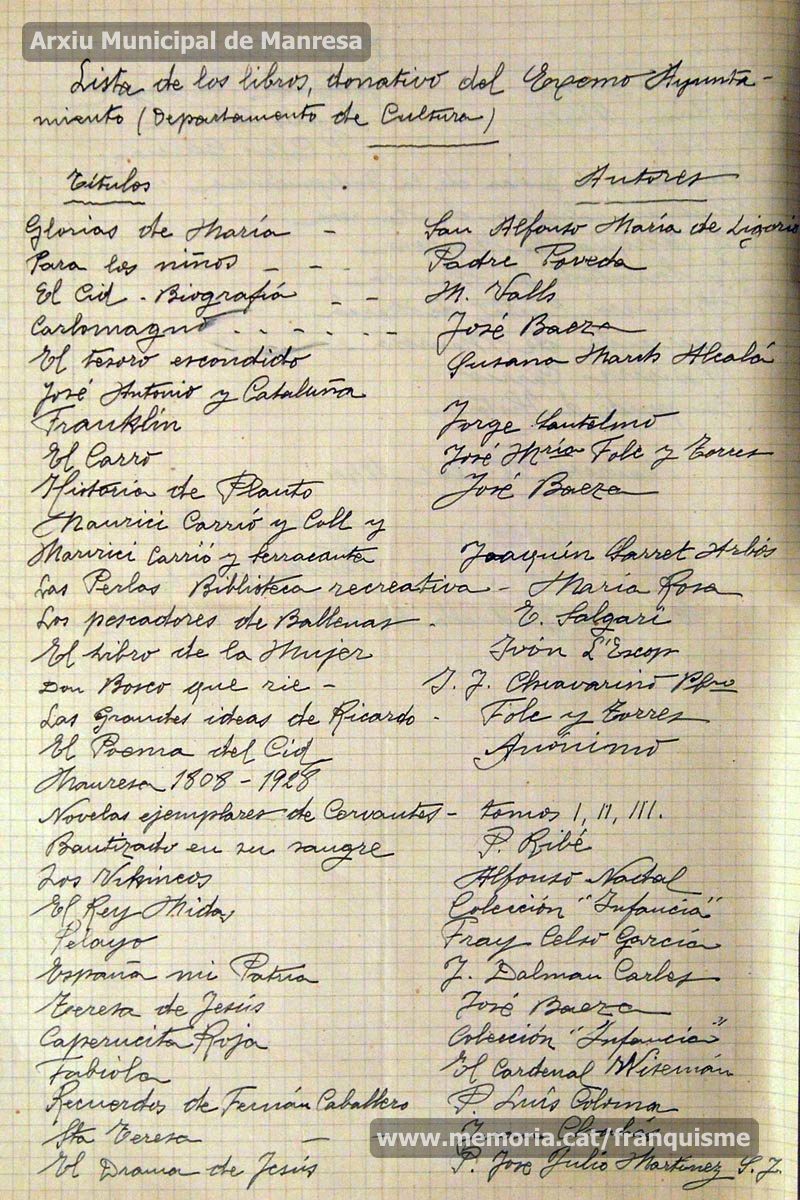 Arxiu Municipal de Manresa
Lista de los libros, donativo del Excmo Ayunta-
miento (Departamento de Cultura)
Títulos Autores
Glorias de María - San Alfonso María de Ligorio
Para los niños - - Padre Poveda
El Cid - Biografía - - M. Valls
Carlomagno - - - - - - José Baeza
El tesoro escondido Susana March Alcalá
José Antonio y Cataluña
Franklín Jorge Santelmo
El Carro José Mría Folc y Torres
Historia de Plauto José Baeza
Maurici Carrió y Coll y
Maurici Carrió y Serracanta Joaquín Sarret Arbós
Las Perlas Biblioteca recreativa - María Rosa
Los pescadores de Ballenas - E. Salgari
El Libro de la Mujer Ivón L'Escop
Don Bosco que rie - J. J. Chiavarino Pbro
Las Grandes ideas de Ricardo - Folc y Torres
El Poema del Cid Anónimo
Manresa 1808 - 1928
Novelas ejemplares de Cervantes - tomos I, II, III.
Bautizado en su sangre P. Ribé
Los Vikincos Alfonso Nadal
El Rey Midas Colección "Infancia"
Pelayo Fray Celso García
España mi Patria J. Dalmau Carles
Teresa de Jesús José Baeza
Caperucita Roja Colección "Infancia"
Fabiola El Cardenal Wisemán
Recuerdos de Fernán Caballero P. Luís Coloma
Sta Teresa - -
www.memoria.cat/franquisme
El Drama de Jesús P. José Julio Martínez S. J.